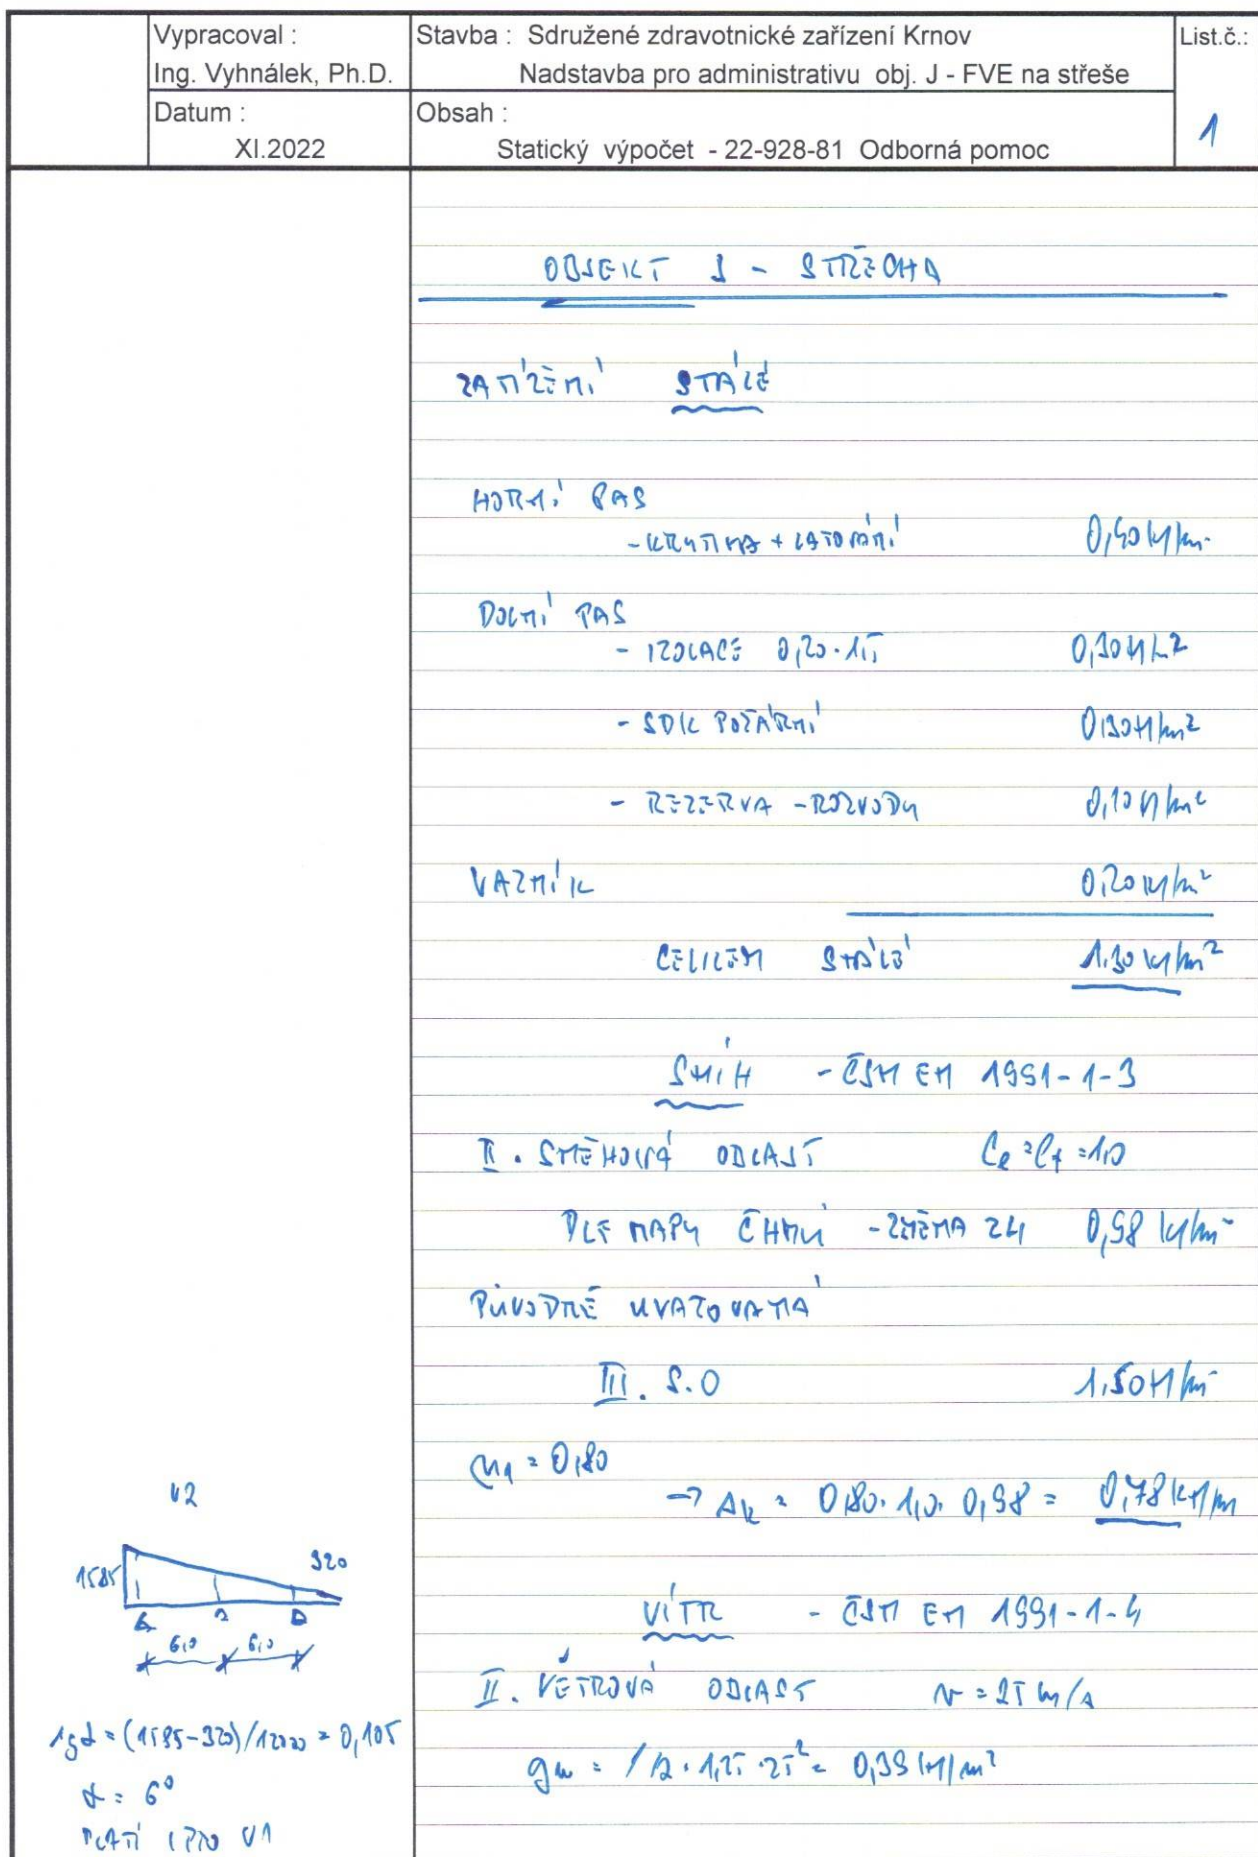 Vypracoval :
Ing. Vyhnálek, Ph.D.
Stavba : Sdružené zdravotnické zařízení Krnov
Nadstavba pro administrativu obj. J - FVE na střeše
List.č.:
Datum :
XI.2022
Obsah :
Statický výpočet - 22-928-81 Odborná pomoc
1
OBJEKT J - STŘECHA
ZATÍŽENÍ STÁLÉ
HORNÍ PAS
- KRYTINA + LAŤOVÁNÍ 0,40 kN/m²
DOLNÍ PAS
- IZOLACE 0,20·1,5 0,30 kN/m²
- SDK POŽÁRNÍ 0,30 kN/m²
- REZERVA - ROZVODY 0,10 kN/m²
VAZNÍK 0,20 kN/m²
CELKEM STÁLÉ 1,30 kN/m²
SNÍH - ČSN EN 1991-1-3
II. SNĚHOVÁ OBLAST Ce = Ct = 1,0
DLE MAPY ČHMÚ - ZMĚNA Z4 0,98 kN/m²
PŮVODNĚ UVAŽOVANÁ
III. S.O 1,50 kN/m²
μ1 = 0,80
→ sk = 0,80·1,0·0,98 = 0,78 kN/m
VÍTR - ČSN EN 1991-1-4
II. VĚTROVÁ OBLAST v = 25 m/s
qw = 1/2·1,25·25² = 0,39 kN/m²
V2
1585
320
6,0 6,0
tgα = (1585-320)/12000 = 0,105
α = 6°
PLATÍ I PRO V1